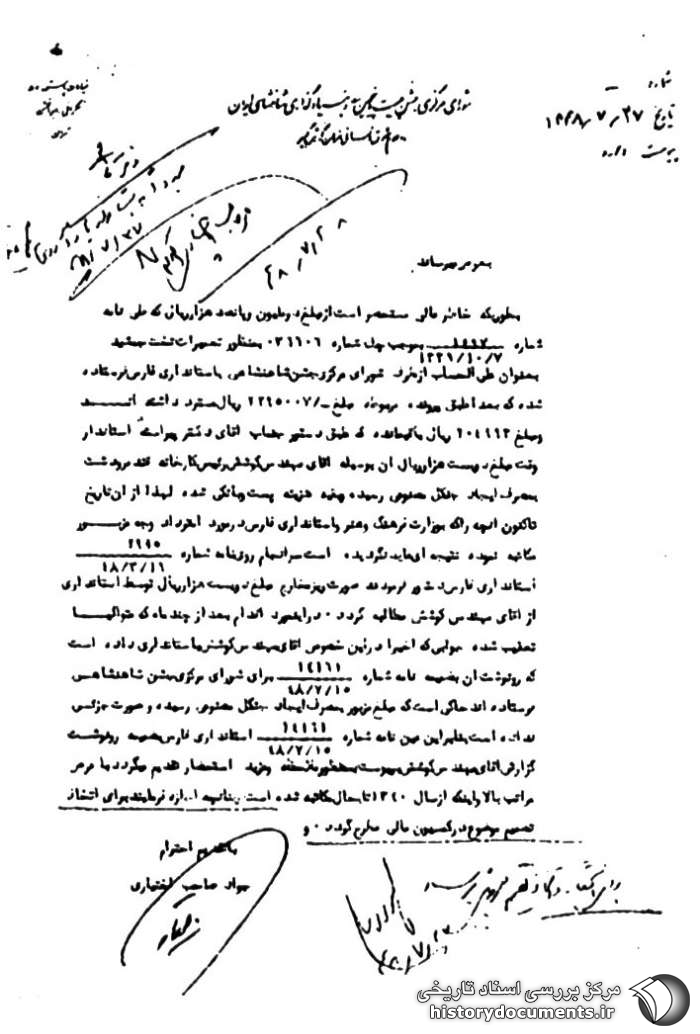 شماره
تاریخ ۱۳۴۸/۷/۲۷
پیوست دارد
شورای مرکزی جشن دوهزار و پانصدمین سال بنیادگذاری شاهنشاهی ایران
۴۸/۷/۲۸
بعرض میرساند
بطوریکه خاطر عالی مستحضر است از مبلغ دو ملیون و پانصد هزار ریال که طی نامه
شماره ۱۴۱۲ بموجب چک شماره ۰۳۱۱۰۶ بمنظور تعمیرات تخت جمشید
۱۳۳۹/۱۰/۷
بعنوان علی الحساب از طرف شورای مرکزی جشن شاهنشاهی باستانداری فارس فرستاده
شده که بعدا طبق پرونده مربوطه مبلغ -/۲۲۹۵۰۰۷ ریال مسترد داشته اند
ومبلغ ۲۰۴۹۹۳ ریال باقیمانده که طبق دستور جناب آقای دکتر پیراسته استاندار
وقت مبلغ دویست هزار ریال آن بوسیله آقای مهندس کوشش رئیس کارخانه قند مرودشت
بمصرف ایجاد جنگل مصنوعی رسیده وبقیه هزینه پست وبانکی شده لهذا از آن تاریخ
تاکنون آنچه راکه بوزارت فرهنگ وهنر و استانداری فارس درمورد استرداد وجه مزبور
مکاتبه نموده نتیجه ای عاید نگردیده است سرانجام روی نامه شماره ۲۹۴۵
۴۸/۳/۱۹
استانداری فارس دستور فرمودند صورت ریز مخارج مبلغ دویست هزار ریال توسط استانداری
از آقای مهندس کوشش مطالبه گردد . دراینمورد اقدام بعد از چند ماه که متوالیا
تعقیب شده جوابی که اخیرا دراین خصوص آقای مهندس کوشش باستانداری داده است
که رونوشت آن بضمیمه نامه شماره ۱۴۱۶۱ برای شورای مرکزی جشن شاهنشاهی
۴۸/۷/۱۵
فرستاده اند حاکی است که مبلغ مزبور بمصرف ایجاد جنگل مصنوعی رسیده و صورت جزئی
نداده است بنابراین عین نامه شماره ۱۴۱۶۱ استانداری فارس بضمیمه رونوشت
۴۸/۷/۱۵
گزارش آقای مهندس کوشش بپیوست بمنظور ملاحظه ومزید استحضار تقدیم میگردد با عرض
مراتب بالا و اینکه از سال ۱۳۴۰ تا بحال مکاتبه شده است چنانچه اجازه فرمایند برای اتخاذ
تصمیم موضوع در کمسیون مالی مطرح گردد . و
با تقدیم احترام
جواد صاحب اختیاری
۴۸/۷/۲۷
مرکز بررسی اسناد تاریخی
historydocuments.ir